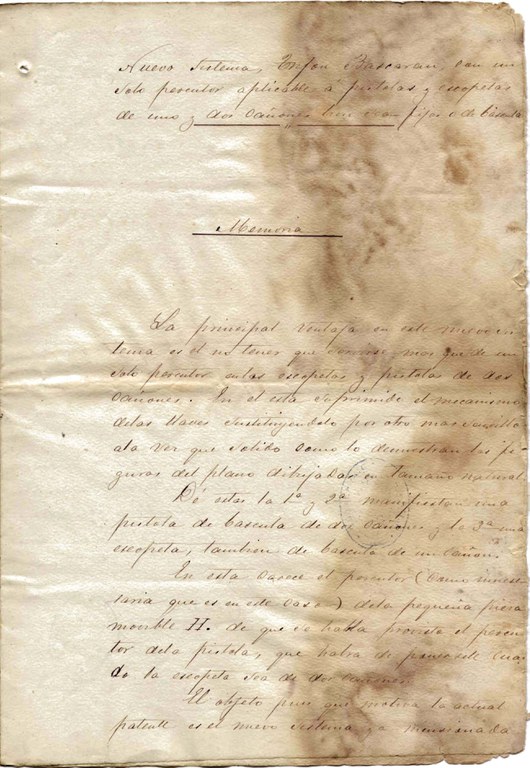 Nuevo sistema, Trifon Bascaran, con un
solo percutor aplicable á pistolas y escopetas
de uno y dos cañones bien sean fijos o de báscula
Memoria
La principal ventaja en este nuevo sis
tema es el no tener que mas que de un
solo percutor en las escopetas y pistolas de dos
cañones. En el esta suprimido el mecanismo
delas llaves sustituyendolo por otro mas sencillo
ala vez que solido como lo demuestran las fi
guras del plano dibujadas en tamaño natural
De estas la 1ª y 2ª manifiestan una
pistola de bascula de dos cañones y la 3ª una
escopeta, tambien de bascula de un cañon.
En esta carece el percutor (como innese
saria que es en este caso) dela pequeña pieza
movible H. de que se habla provista el percu
tor dela pistola, que habra de ponersele cuan
do la escopeta sea de dos cañones.
El objeto pues que motiva la actual
patente es el nuevo sistema ya mensionado